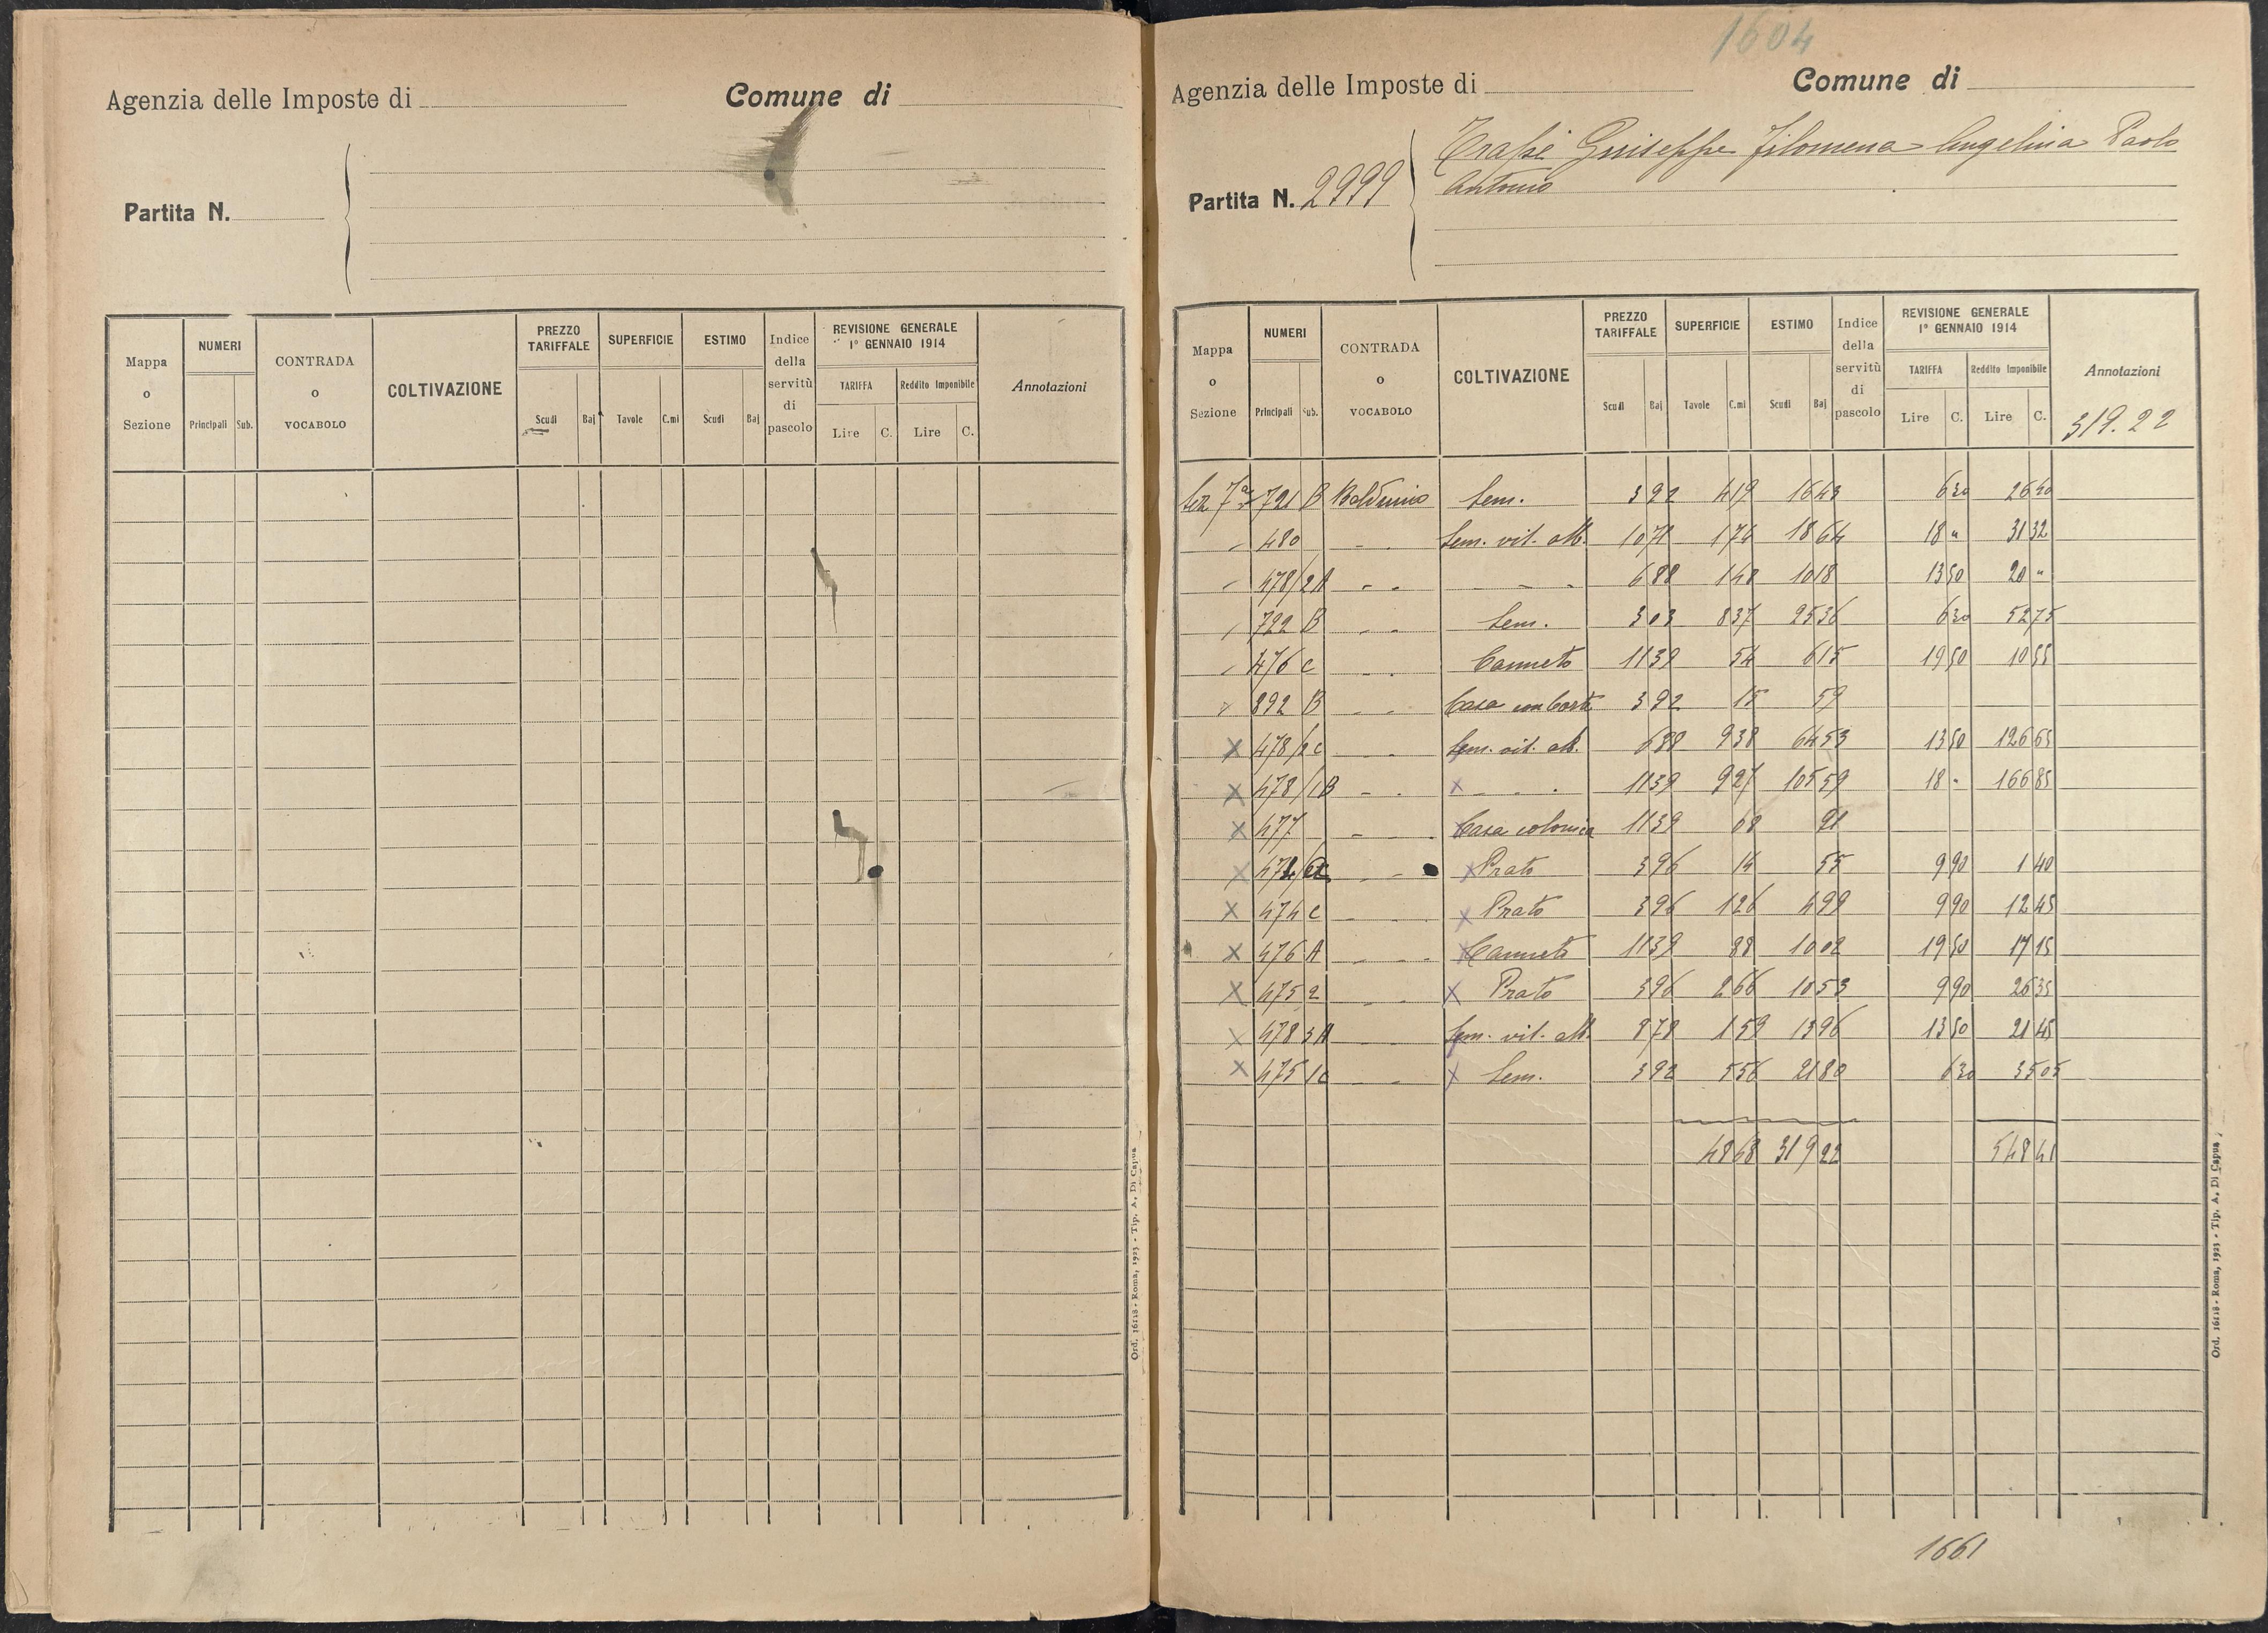 Agenzia delle Imposte di
Comune di
Partita N.
Mappa o Sezione
NUMERI
Principali Sub.
CONTRADA o VOCABOLO
COLTIVAZIONE
PREZZO TARIFFALE
Scudi Baj
SUPERFICIE
Tavole C.mi
ESTIMO
Scudi Baj
Indice della servitù di pascolo
REVISIONE GENERALE
1° GENNAIO 1914
TARIFFA
Lire C.
Reddito Imponibile
Lire C.
Annotazioni
Ord. 16118 - Roma, 1923 - Tip. A. Di Capua
1604
Agenzia delle Imposte di
Comune di
Partita N. 2999
Giuseppe Filomena Angelina Paolo
Antonio
Mappa o Sezione
NUMERI
Principali Sub.
CONTRADA o VOCABOLO
COLTIVAZIONE
PREZZO TARIFFALE
Scudi Baj
SUPERFICIE
Tavole C.mi
ESTIMO
Scudi Baj
Indice della servitù di pascolo
REVISIONE GENERALE
1° GENNAIO 1914
TARIFFA
Lire C.
Reddito Imponibile
Lire C.
Annotazioni
319.22
Sez 7a 721 B Sem. 3 92 4 19 16 43 6 30 26 40
480 Sem. vit. alb. 10 71 1 74 18 64 18 " 31 32
478/2A 6 88 1 48 10 18 13 50 20 "
722 B Sem. 3 03 8 37 25 36 6 30 52 75
476 C Canneto 11 39 54 6 15 19 50 10 55
892 B Casa con Corte 3 92 15 59
X 478/2C Sem. vit. alb. 6 88 9 38 64 53 13 50 126 65
X 478/1B X 11 39 9 27 105 59 18 " 166 85
X 477 Casa colonica 11 39 08 91
X X Prato 3 96 14 55 9 90 1 40
X 474 C X Prato 3 96 1 26 4 99 9 90 12 45
X 476 A X Canneto 11 39 88 10 02 19 50 17 15
X 475 2 X Prato 3 96 2 66 10 53 9 90 26 35
X 478 3A Sem. vit. alb. 8 78 1 59 13 96 13 50 21 45
X 475 1C X Sem. 3 92 5 56 21 80 6 30 35 05
48 68 319 22 548 41
1661
Ord. 16118 - Roma, 1923 - Tip. A. Di Capua